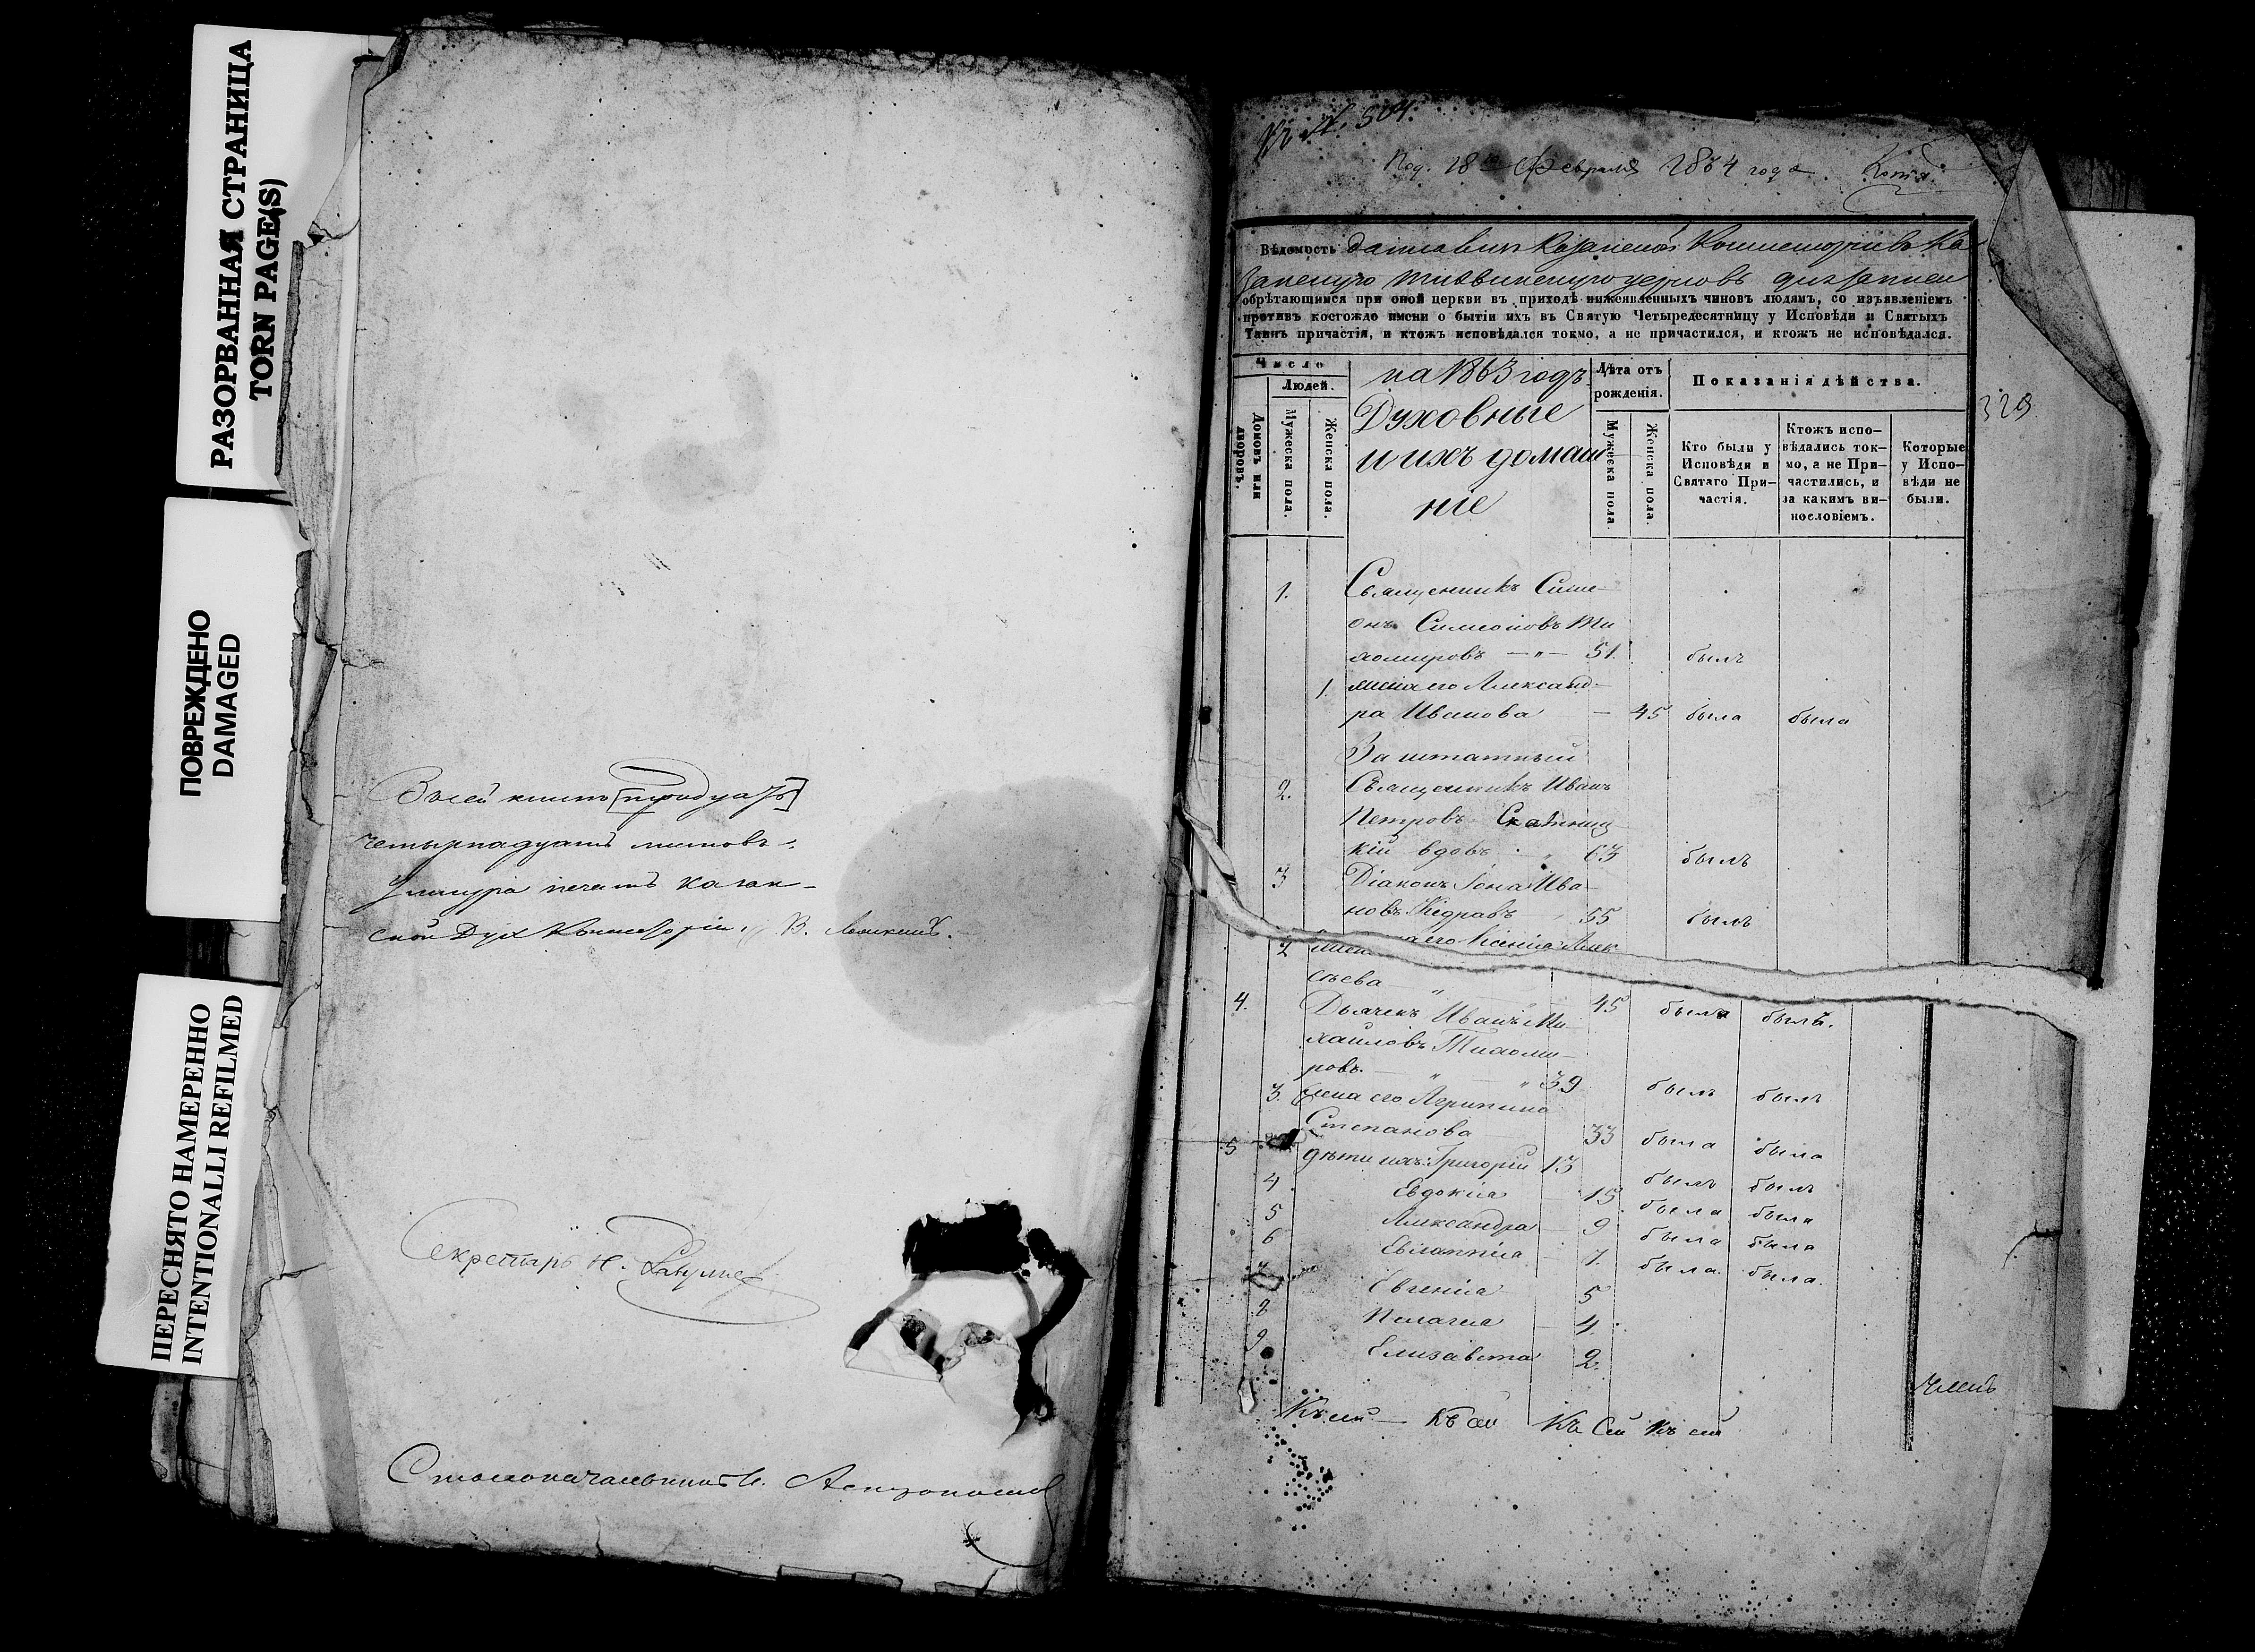 РАЗОРВАННАЯ СТРАНИЦА
TORN PAGE(S)
ПОВРЕЖДЕНО
DAMAGED
ПЕРЕСНЯТО НАМЕРЕННО
INTENTIONALLI REFILMED
четырнадцать листовъ
печать казан-
ской Дух Консисторіи. В.
Секретарь Н.
Столоначальникъ
№ 504.
Под. 18го Февраля 1864 года. Копія
329
Вѣдомость данная изъ Казанской Консисторіи въ Ка
занскую Тихвинскую церковь для записи
обрѣтающимся при оной церкви въ приходѣ нижеявленныхъ чиновъ людямъ, со изъявленіемъ
противъ коегождо имени о бытіи ихъ въ Святую Четыредесятницу у Исповѣди и Святыхъ
Таинъ причастія, и ктожъ исповѣдался токмо, а не причастился, и ктожъ не исповѣдался.
Число
Людей.
Домовъ или дворовъ.
Мужеска пола.
Женска пола.
на 1863 годъ
Духовные
и ихъ домаш
ніе
Лѣта отъ рожденія.
Мужеска пола.
Женска пола.
Показанія дѣйства.
Кто были у Исповѣди и Святаго При-частія.
Ктожъ испо-вѣдались ток-мо, а не При-частились, и за какимъ ви-нословіемъ.
Которые у Испо-вѣди не были.
1. Священникъ Симе-
онъ Симеоновъ Ти
хомировъ — " — 51. былъ
1. жена его Александ-
ра Иванова — 45 была была
Заштатный
2. Священникъ Иванъ
Петровъ
кій вдовъ 63 былъ
3 Діаконъ Іона Ива-
новъ Кедровъ 55 былъ
2 жена его Ксенія Алек
сѣева 45 была былъ.
4. Дьячекъ Иванъ Ми
хаиловъ Тихоми-
ровъ. — " 39 былъ былъ
3. жена его Агрипина
Степанова 33 была была
5 дѣти ихъ: Григорій 13 былъ былъ
4 Евдокія 15 была была
5 Александра 9 была была
6 Евлампія 7. была. была.
7 Евгенія 5
8 Пелагея 4.
9 Елизавета 2.
Къ сей — Къ сей Къ Сей Къ сей